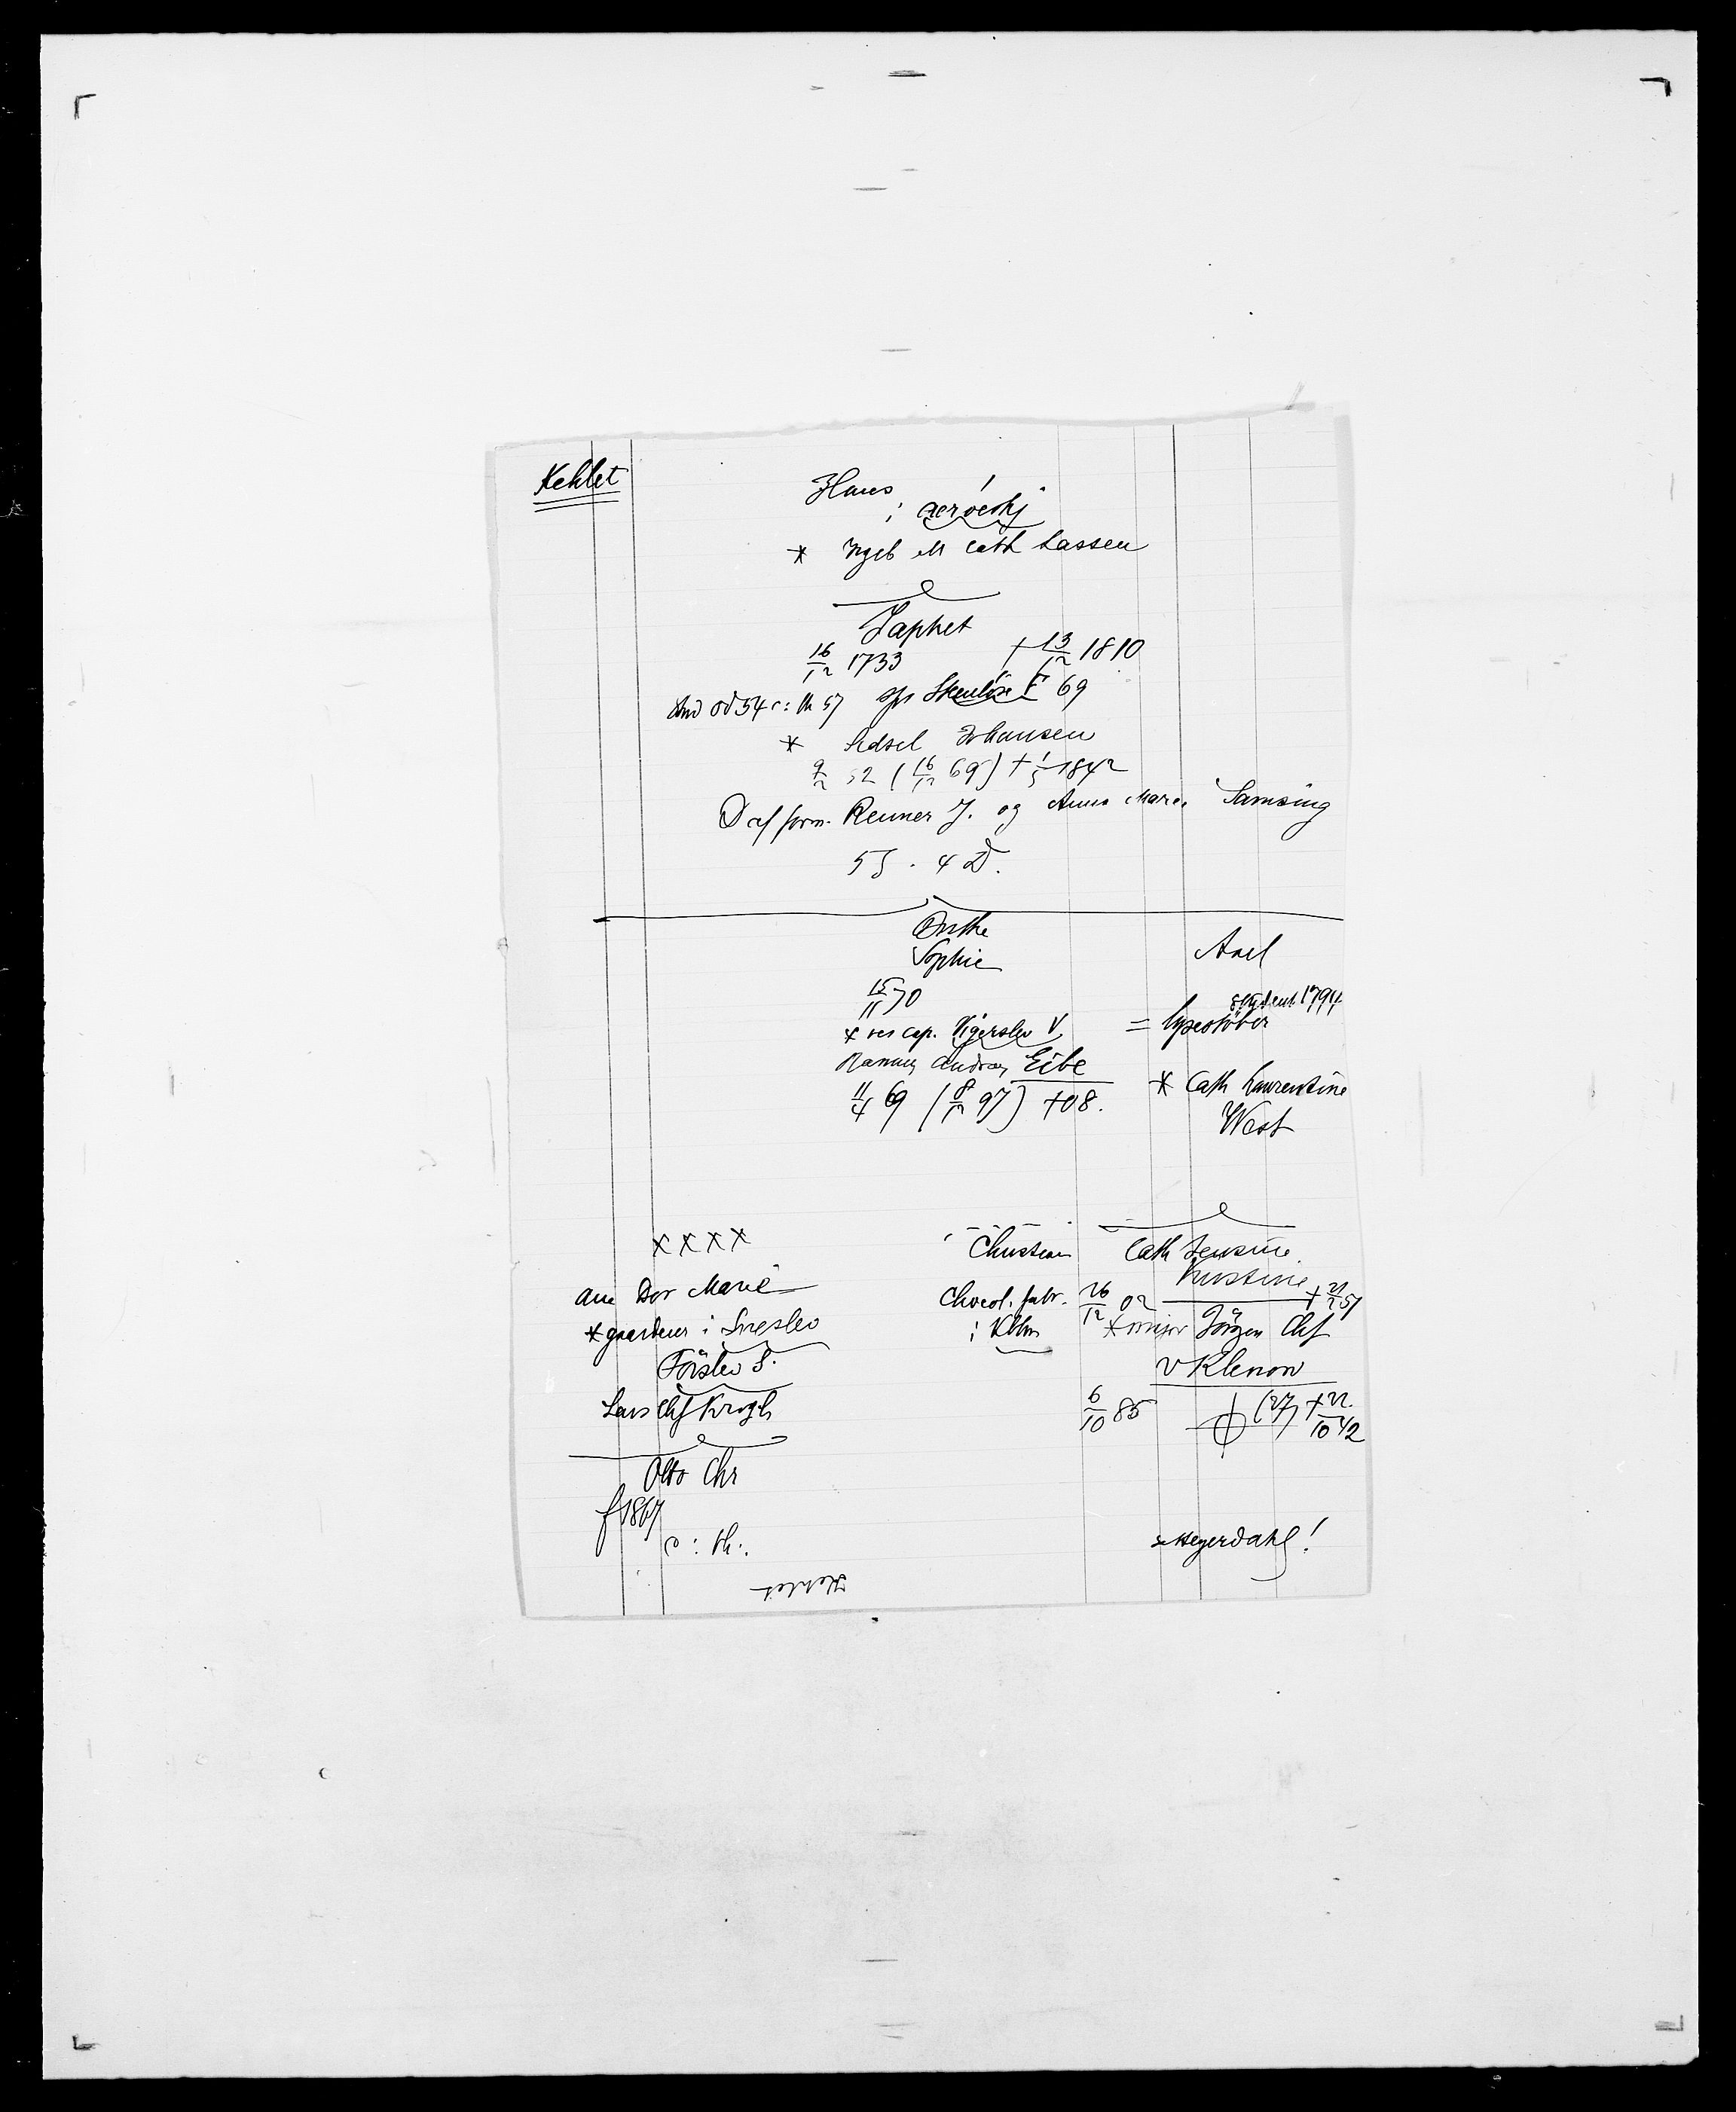 Kehlet
Hans
i Ærøeskj
* Ingb M Cath Lassen
Japhet
16/12 1733 † 13/12 1810
stud Od 54 c: th 57 sp Stenløse F 69
* Sidsel Johansen
9/2 52 (16/12 69) † 1/5 1842
D af form. Renner J. og Anna Marie Samsing
5 S. 4 D.
Dorthe
Sophie
15/11 70
* res cap. Vigerslev V
Rasmus Andreas Eibe
11/4 69 (8/12 97) †08.
Axel
student 1794
=
* Cath Laurentine
West
××××
Ane Dor Marie
* gaardeier i Sneslev
Førslev S.
Lars Chf Krogh
Otto Chr
f 1867
c: th:.
Christian
Chocol. fabr.
i Kbhn
Cath Jensine
Kirstine † 21/2 57
26/12 02
* major Jörgen Chf
v Klenow
6/10 85 (27) † 22/10 42
se Heyerdahl!
Kehlet